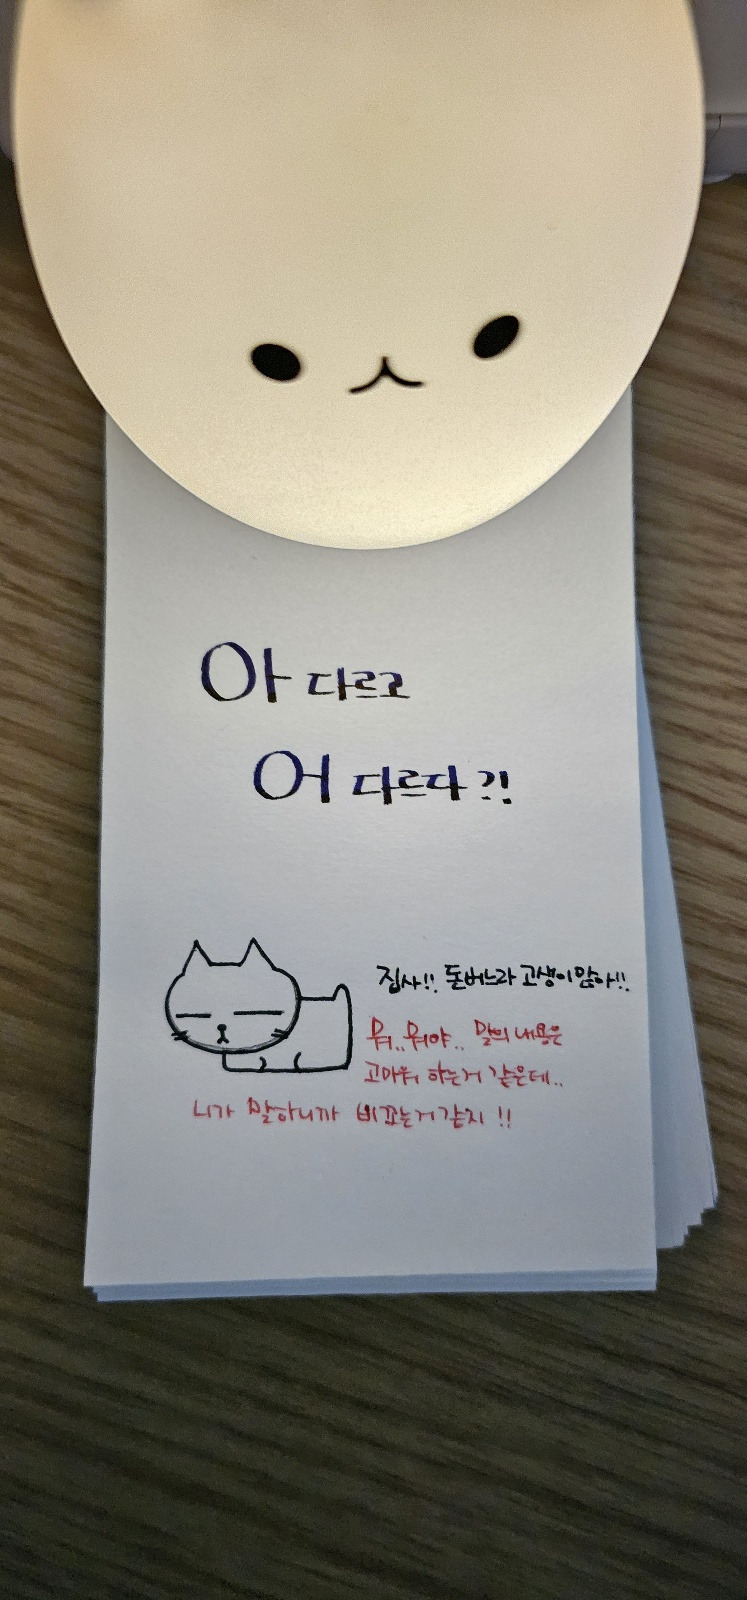 아 다르고
어 다르다?!
집사!! 돈버느라 고생이많아!!
뭐..뭐야.. 말의 내용은
고마워 하는거 같은데..
니가 말하니까 비꼬는거같지!!